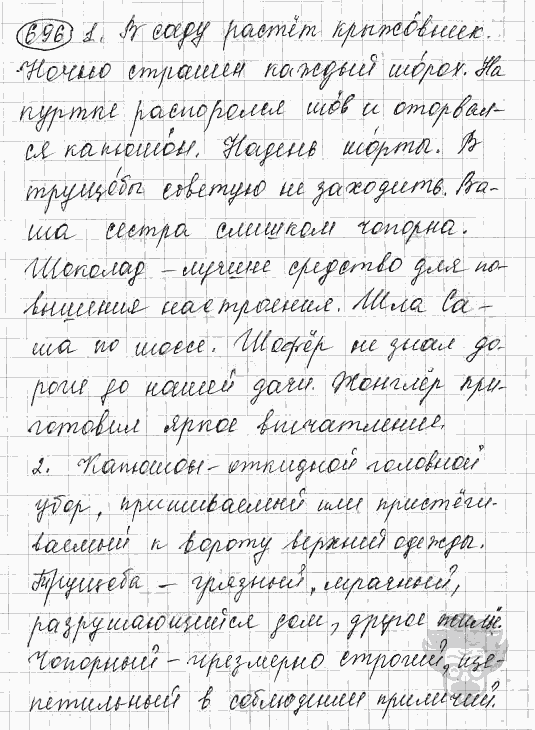 696 1. В саду растёт крыжо́вник.
Ночью страшен каждый шо́рох. На
куртке распоролся шов и оторвал-
ся капюшо́н. Надень шо́рты. В
трущо́бы советую не заходить. Ва-
ша сестра слишком чопорна.
Шоколад – лучшее средство для по-
вышения настроения. Шла Са-
ша по шоссе. Шофёр не знал до-
роги до нашей дачи. Жонглёр при-
готовил яркое впечатление.
2. Капюшон – откидной головной
убор, пришиваемый или пристёги-
ваемый к вороту верхней одежды.
Трущоба – грязный, мрачный,
разрушающийся дом, другое
Чопорный – чрезмерно строгий, ще-
петильный в соблюдении приличий.